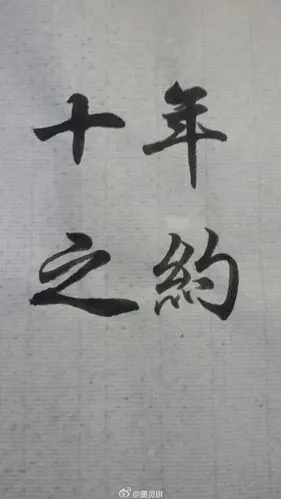 十年
之約
@墨灵琪